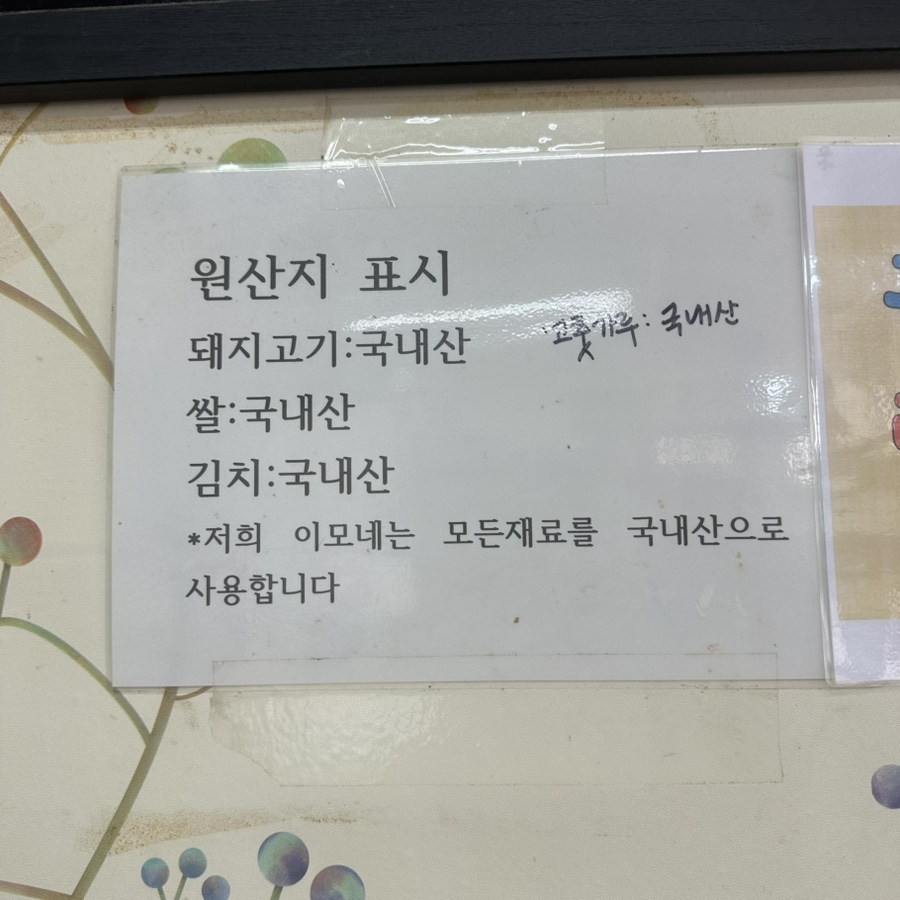 원산지 표시
돼지고기:국내산
고춧가루: 국내산
쌀:국내산
김치:국내산
*저희 이모네는 모든재료를 국내산으로
사용합니다